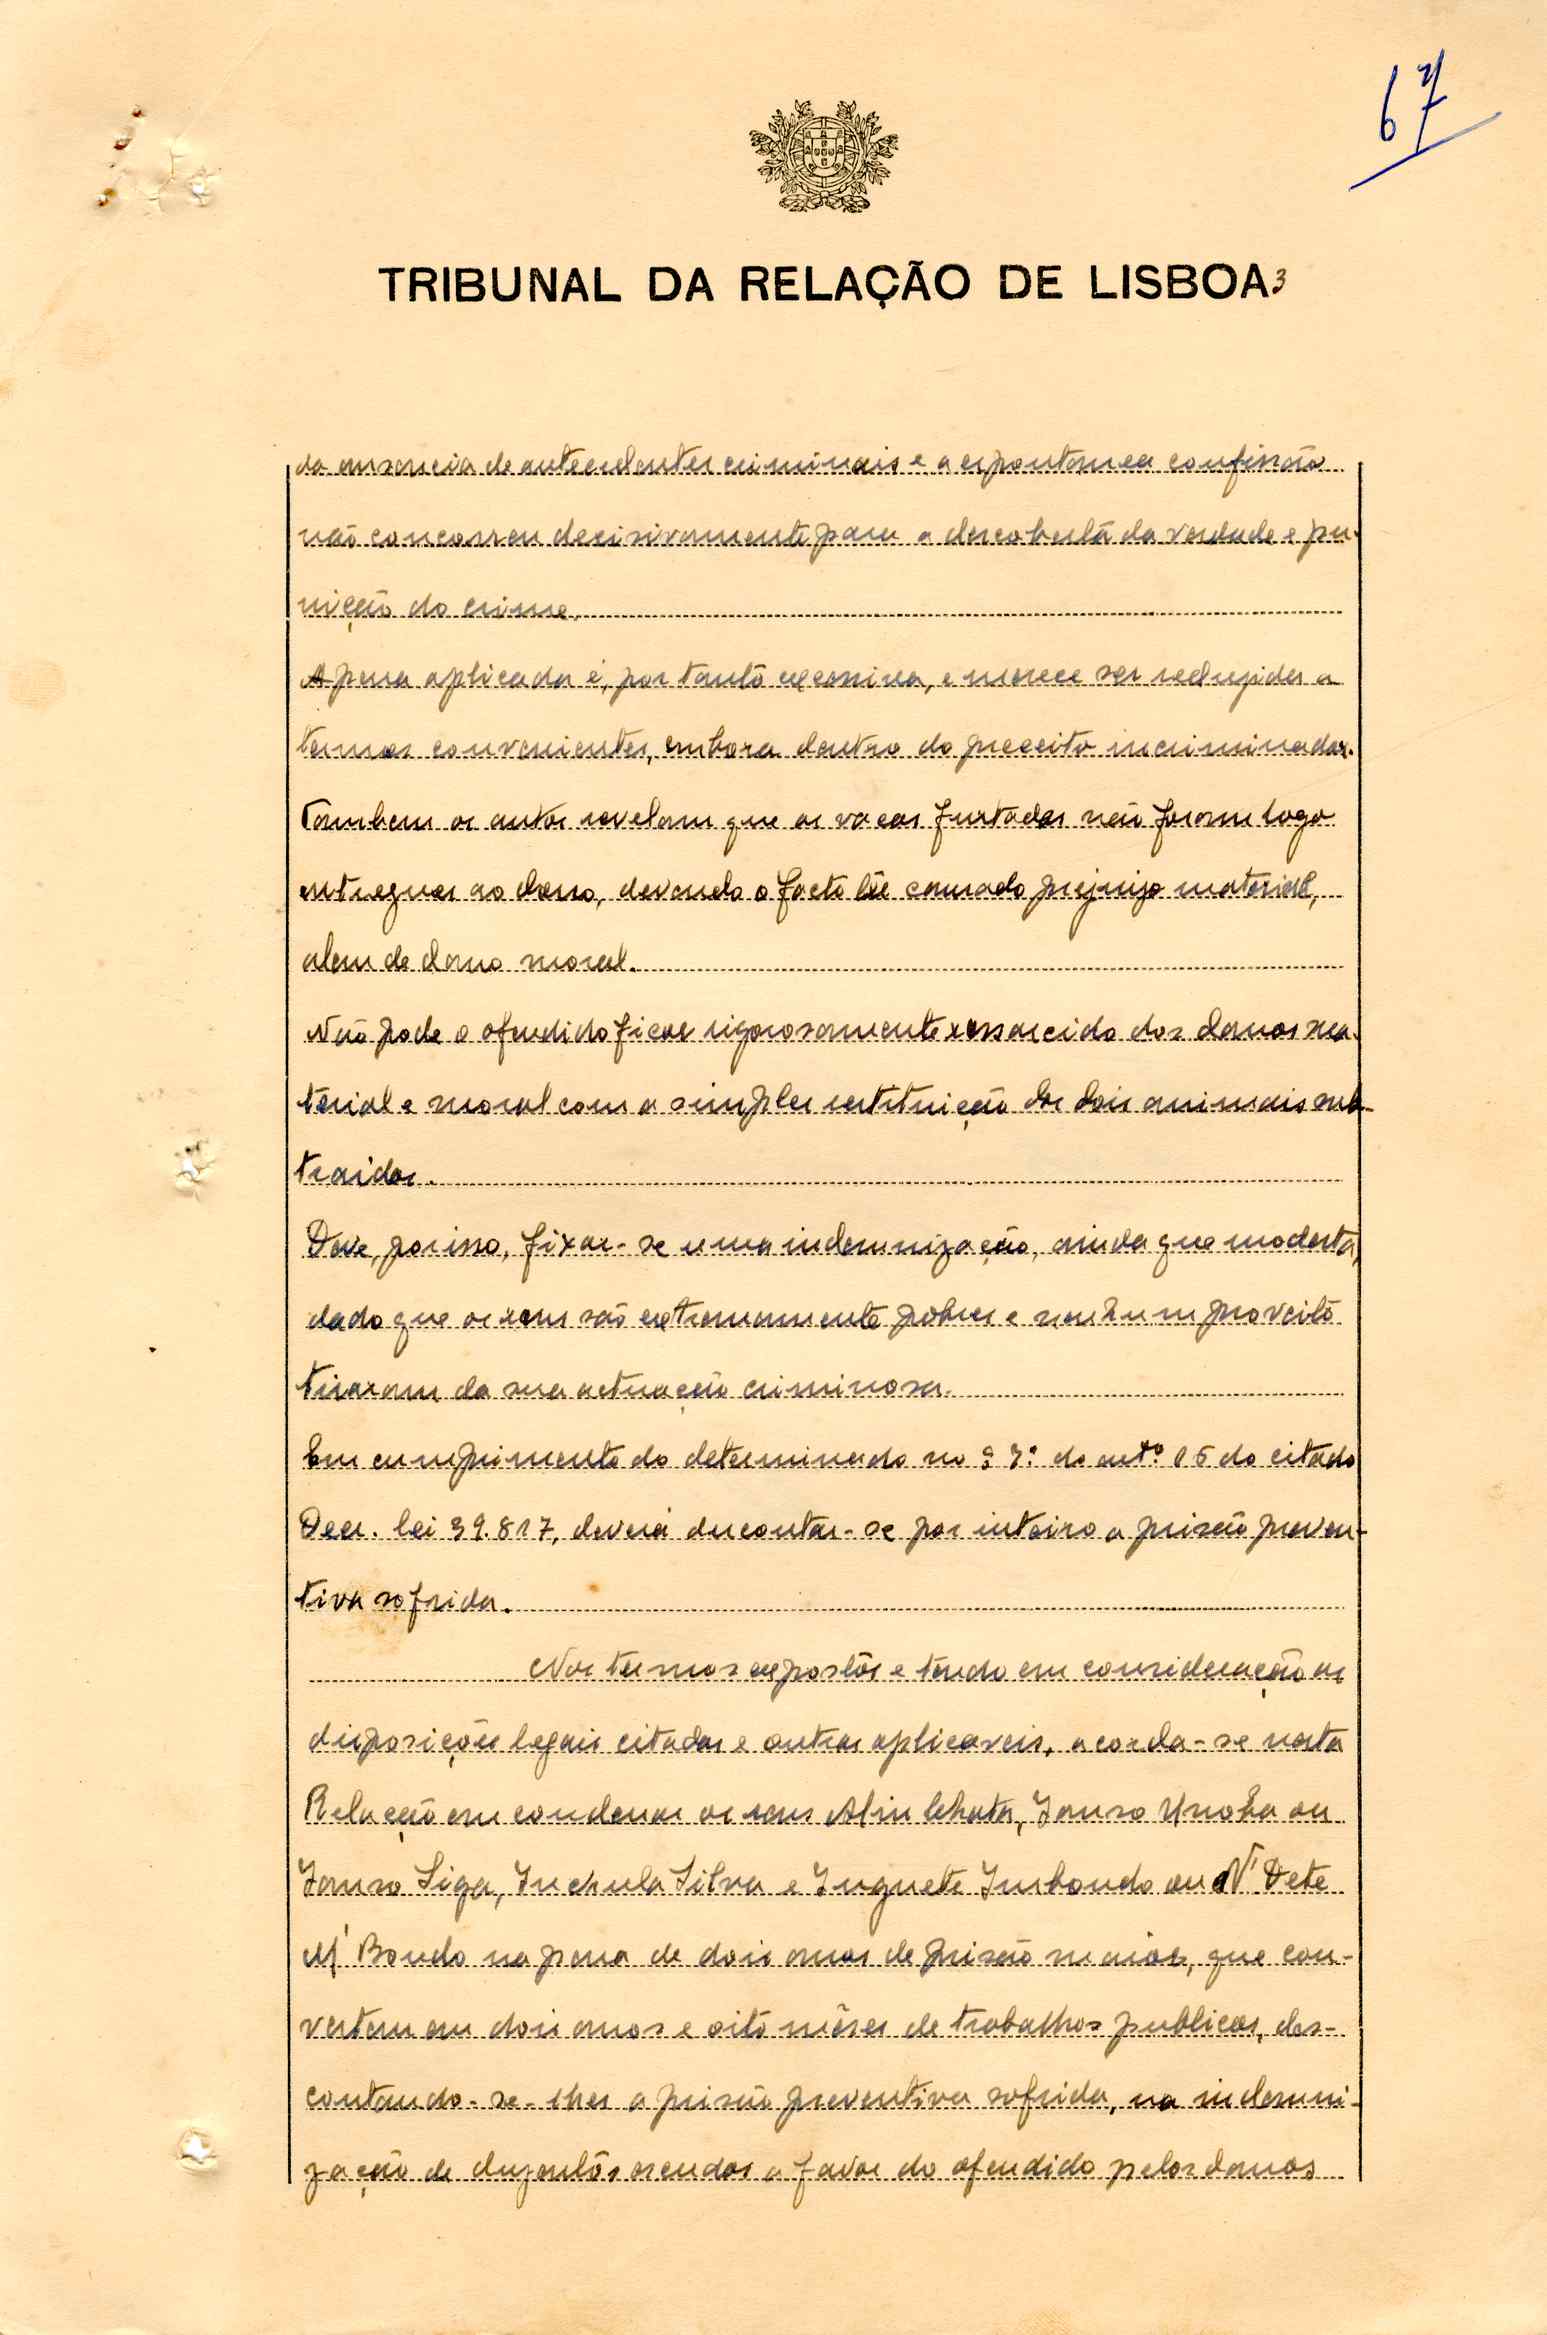 67
TRIBUNAL DA RELAÇÃO DE LISBOA 3
da ausencia de antecedentes criminais e a espontanea confissão
não concorreu decisivamente para a descoberta da verdade e pu-
nição do crime.
A pena aplicada é, por tanto excessiva, e merece ser reduzida a
termos convenientes, embora dentro do preceito incriminador.
Tambem os autos revelam que as vacas furtadas não foram logo
entregues ao dono, devendo o facto ter causado prejuizo material,
alem de dano moral.
Não pode o ofendido ficar rigorosamente ressarcido dos danos ma-
terial e moral com a simples restituição dos dois animais sub-
traidos.
Deve, por isso, fixar-se uma indemnização, ainda que modesta,
dado que os reus são extremamente pobres e nenhum proveito
tiraram da sua actuação criminosa.
Em cumprimento do determinado no § 3º do artº 15 do citado
Decr. lei 39.817, deverá descontar-se por inteiro a prisão preven-
tiva sofrida.
Nos termos expostos e tendo em consideração as
disposições legais citadas e outras aplicaveis, acorda-se nesta
Relação em condenar os reus Alin Chata, Jamra ou
Jamra Siga, Silva e ou N'Dete
M'Bondo na pena de dois anos de prisão maior, que con-
vertem em dois anos e oito mêses de trabalhos publicos, des-
contando-se-lhes a prisão preventiva sofrida, na indemni-
zação de duzentos escudos a favor do ofendido pelos danos